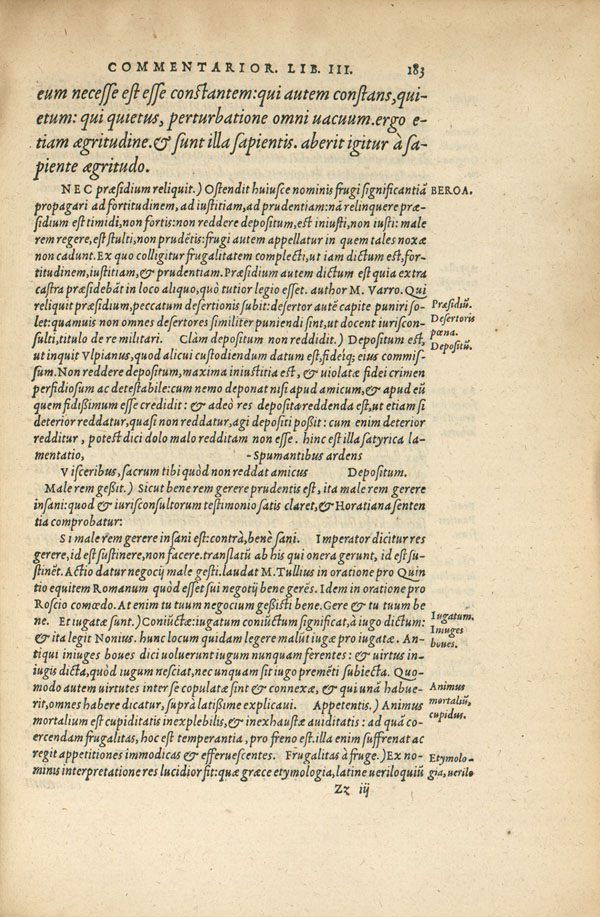 COMMENTARIOR. LIB. III. 183
eum necesse est esse constantem: qui autem constans, qui-
etum: qui quietus, perturbatione omni uacuum. ergo e-
tiam ægritudine. & sunt illa sapientis. aberit igitur à sa-
piente ægritudo.
NEC præsidium reliquit.) Ostendit huiusce nominis frugi significantiã BEROA.
propagari ad fortitudinem, ad iustitiam, ad prudentiam: nã relinquere præ-
sidium est timidi, non fortis: non reddere depositum, est iniusti, non iusti: male
rem regere, est stulti, non prudẽtis: frugi autem appellatur in quem tales noxæ
non cadunt. Ex quo colligitur frugalitatem complecti, ut iam dictum est, for-
titudinem, iustitiam, & prudentiam. Præsidium autem dictum est quia extra
castra præsidebãt in loco aliquo, quò tutior legio esset. author M. Varro. Qui
reliquit præsidium, peccatum desertionis subit: desertor autẽ capite puniri so-
Præsidiũ.
let: quamuis non omnes desertores similiter puniendi sint, ut docent iuriscon-
Desertoris
sulti, titulo de re militari. Clàm depositum non reddidit.) Depositum est,
pœna.
ut inquit Vlpianus, quod alicui custodiendum datum est, fideiq; eius commis-
Depositũ.
sum. Non reddere depositum, maxima iniustitia est, & uiolatæ fidei crimen
perfidiosum ac detestabile: cum nemo deponat nisi apud amicum, & apud eũ
quem fidißimum esse credidit: & adeò res deposita reddenda est, ut etiam si
deterior reddatur, quasi non reddatur, agi depositi poßit: cum enim deterior
redditur, potest dici dolo malo redditam non esse. hinc est illa satyrica la-
mentatio, - Spumantibus ardens
Visceribus, sacrum tibi quòd non reddat amicus Depositum.
Male rem geßit.) Sicut bene rem gerere prudentis est, ita male rem gerere
insani: quod & iurisconsultorum testimonio satis claret, & Horatiana senten
tia comprobatur:
Si male rem gerere insani est: contrà, benè sani. Imperator dicitur res
gerere, id est sustinere, non facere. translatũ ab his qui onera gerunt, id est su-
stinẽt. Actio datur negocij male gesti. laudat M. Tullius in oratione pro Quin
tio equitem Romanum quòd esset sui negotij bene gerẽs. Idem in oratione pro
Roscio comœdo. At enim tu tuum negocium geßisti bene. Gere & tu tuum be
ne. Et iugatæ sunt.) Coniũctæ: iugatum coniũctum significat, à iugo dictum:
Iugatum.
& ita legit Nonius. hunc locum quidam legere malũt iugæ pro iugatæ. An-
Iniuges
tiqui iniuges boues dici uoluerunt iugum nunquam ferentes: & uirtus in-
boues.
iugis dicta, quòd iugum nesciat, nec unquam sit iugo premẽti subiecta. Quo-
modo autem uirtutes inter se copulatæ sint & connexæ, & qui unã habue-
Animus
rit, omnes habere dicatur, suprà latißime explicaui. Appetentis.) Animus
mortaliũ,
mortalium est cupiditatis inexplebilis, & inexhaustæ auiditatis: ad quã co-
cupidus.
ercendam frugalitas, hoc est temperantia, pro freno est. illa enim suffrenat ac
regit appetitiones immodicas & efferuescentes. Frugalitas à fruge.) Ex no-
Etymolo-
minis interpretatione res lucidior fit: quæ græce etymologia, latine ueriloquiũ
gia, uerilo
Zz iij